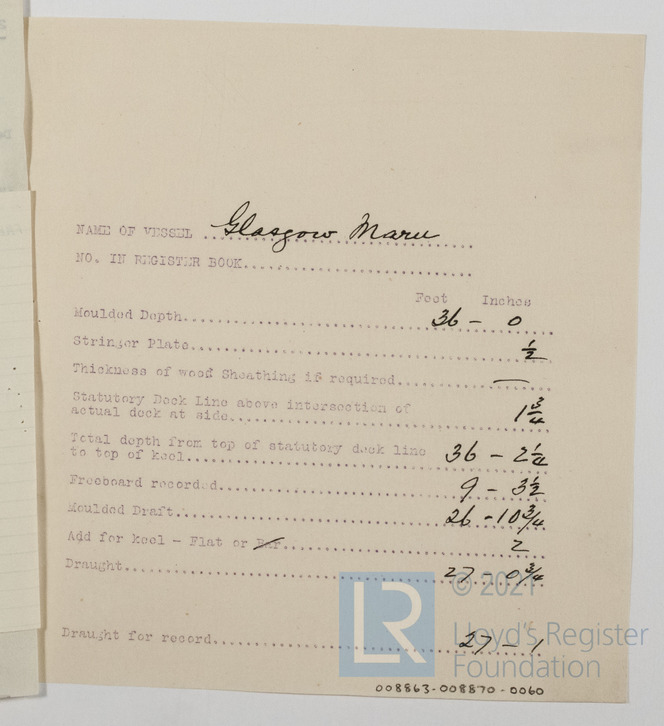 NAME OF VESSEL ..Glasgow Maru......
NO. IN REGISTER BOOK..............................
Feet Inches
Moulded Depth.............................. 36 - 0
Stringer Plate.............................. ½
Thickness of wood Sheathing if required.............. —
Statutory Deck Line above intersection of
actual deck at side.............................. 1¾
Total depth from top of statutory deck line
to top of keel.............................. 36 - 2¼
Freeboard recorded.............................. 9 - 3½
Moulded Draft.............................. 26 - 10¾
Add for keel - Flat or Bar.............................. 2
Draught.............................. 27 - 0¾
© 2021
Draught for record.............................. 27 - 1
LR
Lloyd's Register
Foundation
008863-008870-0060